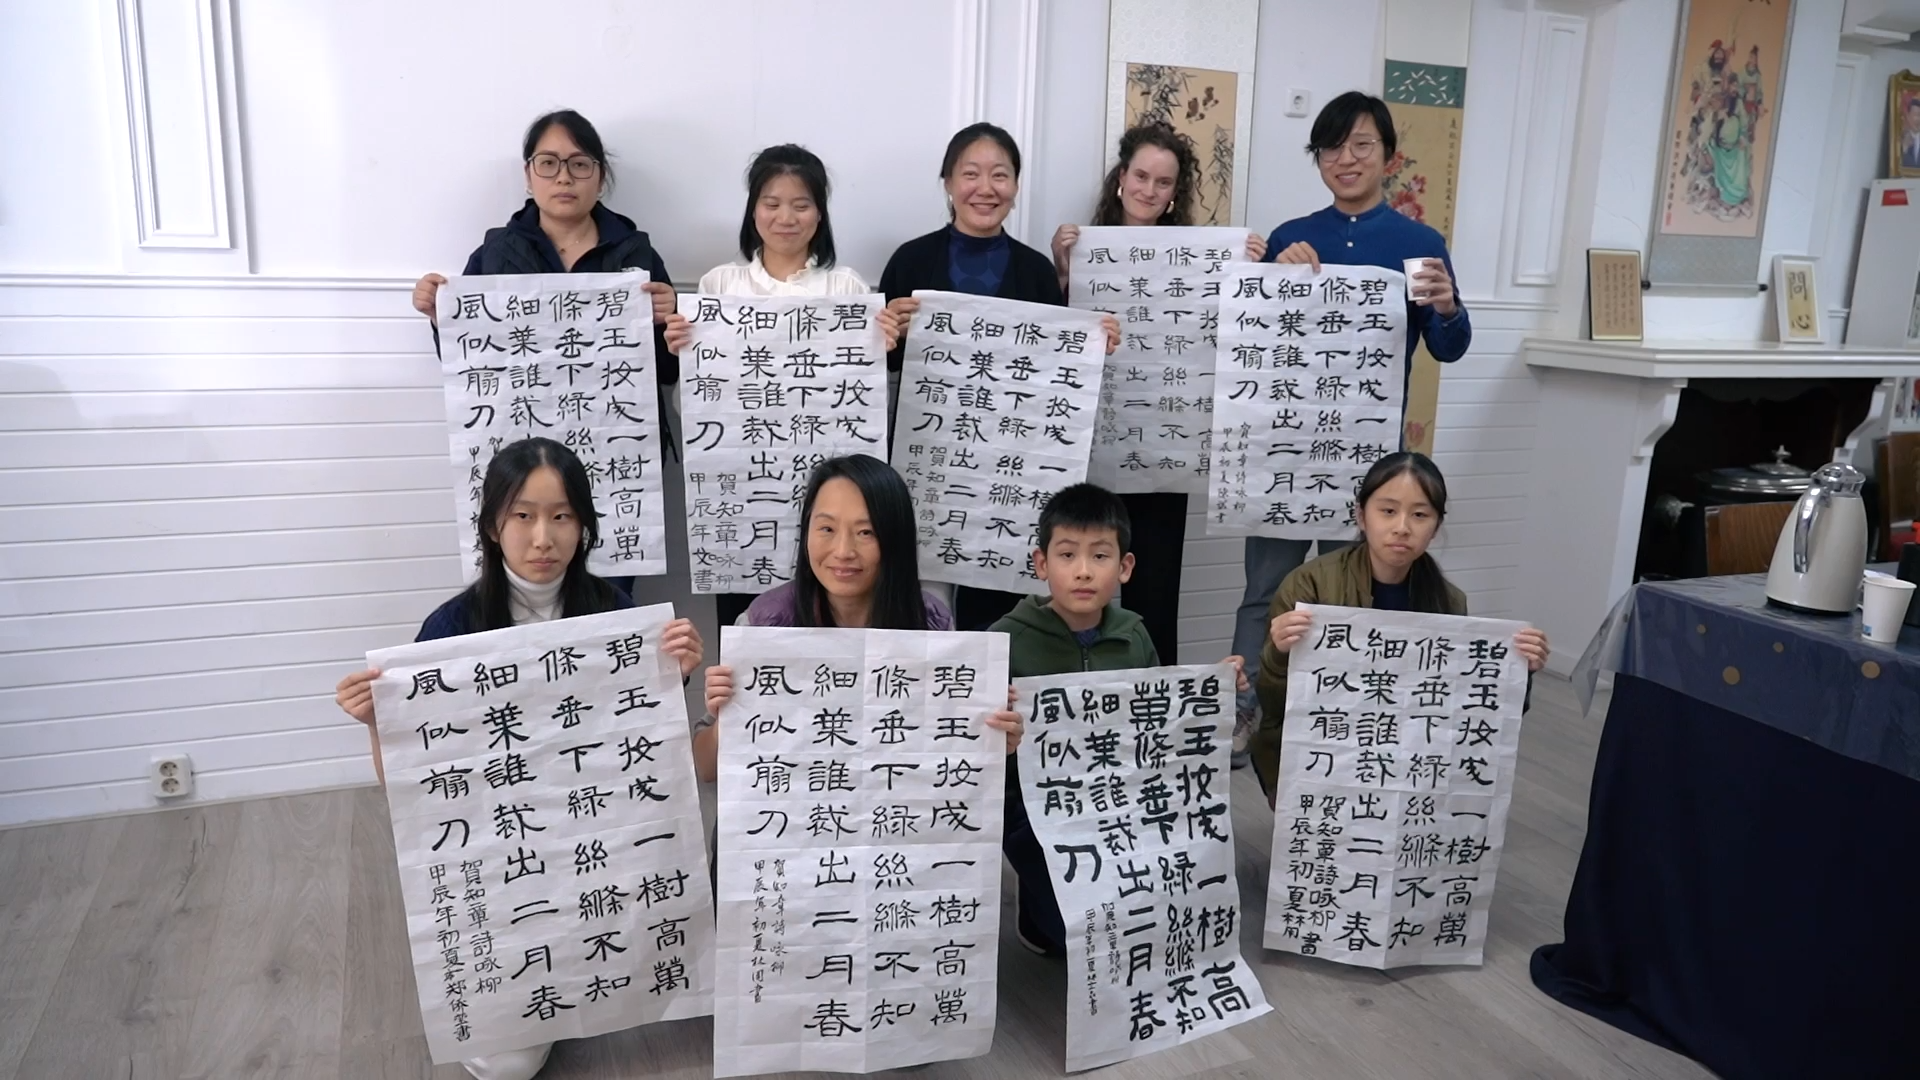 碧玉妝成一樹高萬
條垂下綠絲縧
細葉誰裁出
風似翦刀
賀
甲辰年初
碧玉妝成
條垂下綠絲
細葉誰裁出二月春
風似翦刀
賀知章咏柳
甲辰年 書
碧玉妝成一樹高萬
條垂下綠絲縧不知
細葉誰裁出二月春
風似翦刀
賀知章詩咏柳
甲辰年初
碧玉妝一樹高萬
條垂下綠絲縧不知
細葉誰裁出二月春
風似
賀知章詩咏柳
碧玉妝成一樹高萬
條垂下綠絲縧不知
細葉誰裁出二月春
風似翦刀
賀知章詩咏柳
甲辰初夏陳書
問心
碧玉妝成一樹高萬
條垂下綠絲縧不知
細葉誰裁出二月春
風似翦刀
賀知章詩咏柳
甲辰年初夏郑書
碧玉妝成一樹高萬
條垂下綠絲縧不知
細葉誰裁出二月春
風似翦刀
賀知章詩咏柳
甲辰年初夏書
碧玉妝成一樹高
萬條垂下綠絲縧不知
細葉誰裁出二月春
風似翦刀
賀知章詩咏柳
甲辰年初夏書
碧玉妝成一樹高萬
條垂下綠絲縧不知
細葉誰裁出二月春
風似翦刀
賀知章詩咏柳書
甲辰年初夏林